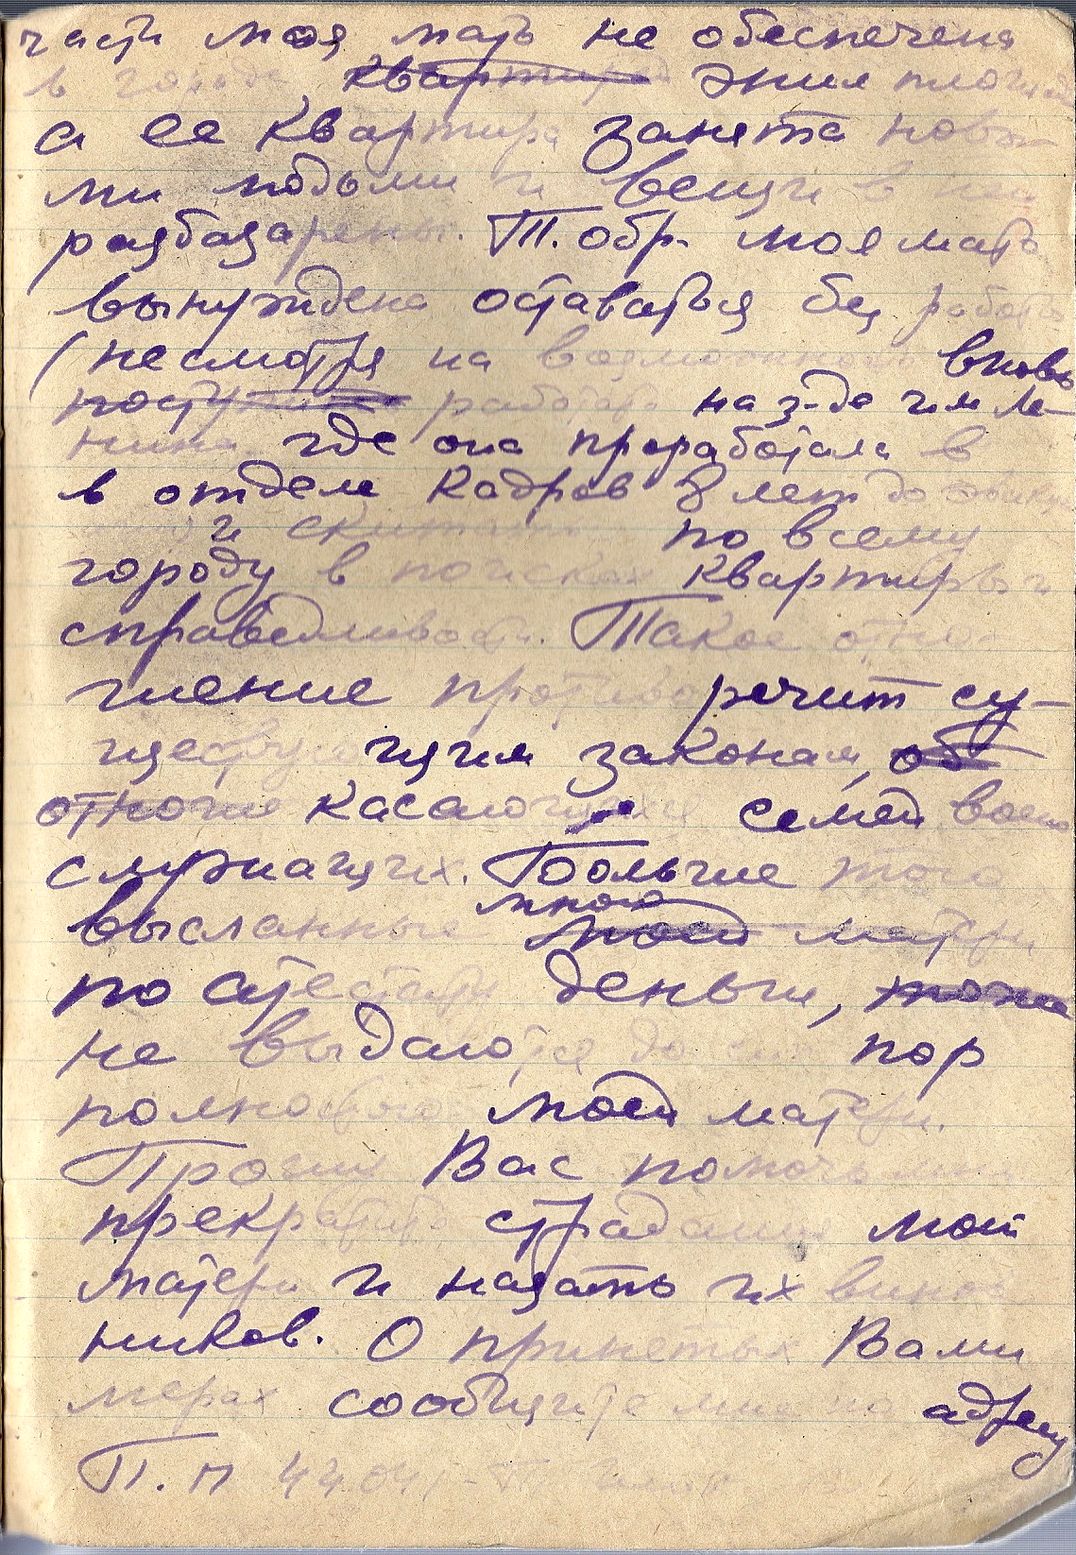 части моя мать не обеспечена
в городе квартирой жил площадью
а ее квартира занята новы-
ми людьми и вещи в ней
разбазарены. Т. обр. моя мать
вынуждена оставаться без работы
(несмотря на возможность вновь
поступить работать на з-де им Ле-
нина где она проработала в
в отделе Кадров 8 лет до
и скитат по всему
городу в поисках квартиры и
справедливости. Такое отно-
шение противоречит су-
ществующим законам, об
отноше касающихся семей военно
служащих. Больше того
высланные мною моей матери
по атестату деньги, тоже
не выдаются до сих пор
полностью моей матери.
Прошу Вас помочь мне
прекратить страдания моей
матери и назать их винов
ников. О принятых Вами
мерах сообщите мне по адресу
П. П 44041-Т